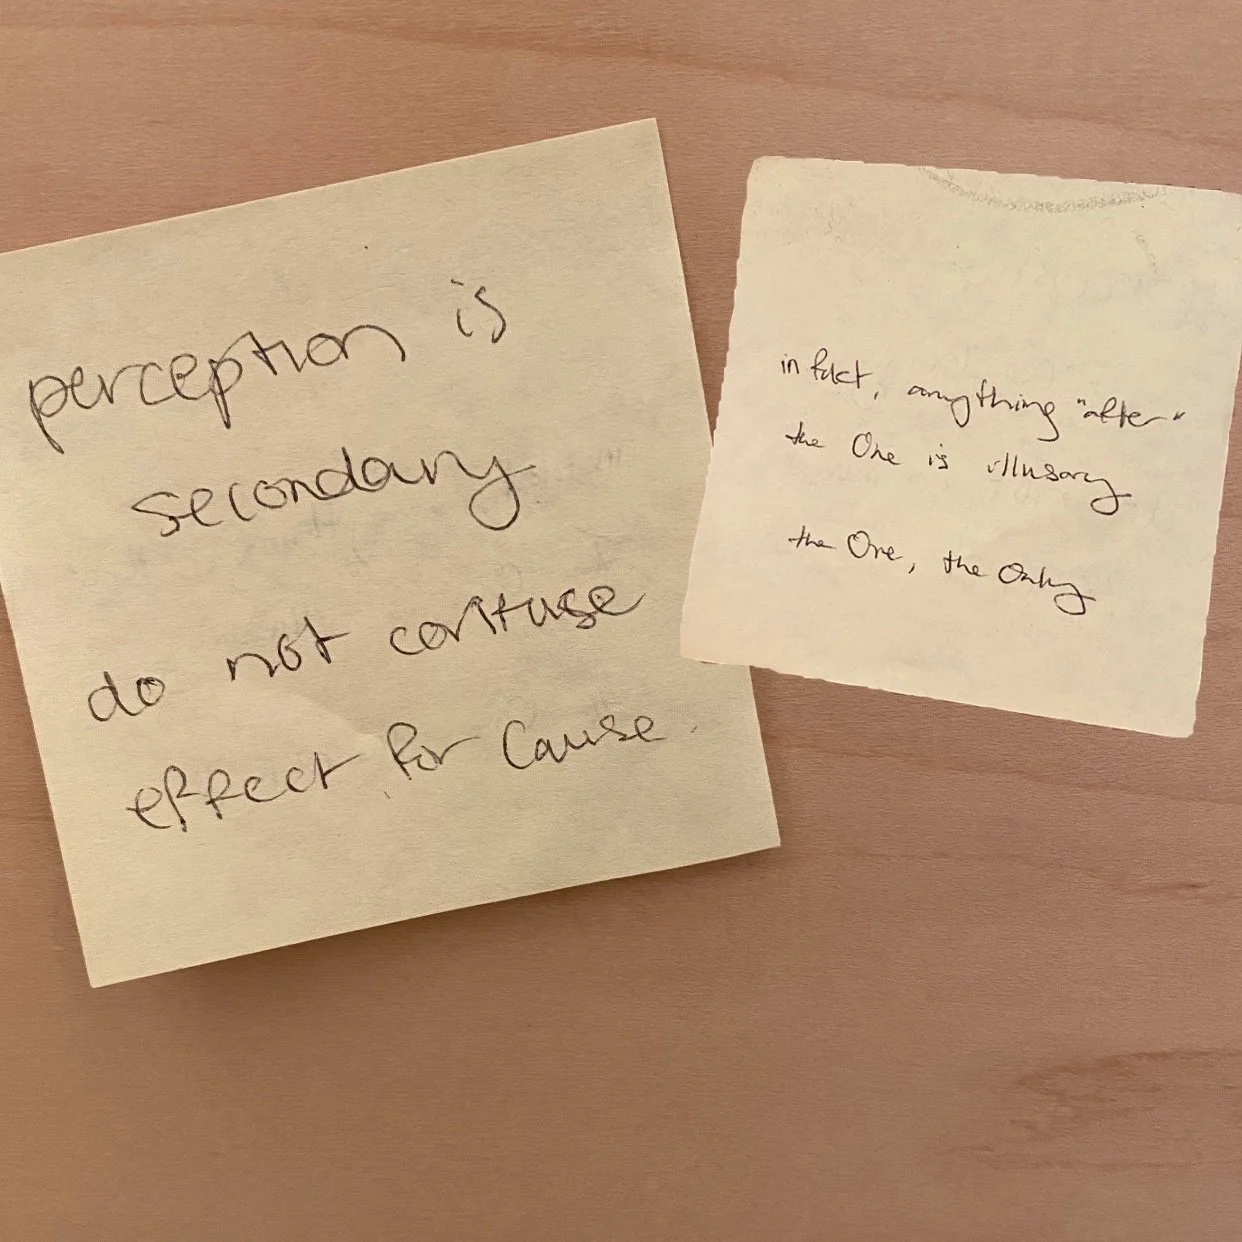 perception is
secondary
do not confuse
effect for Cause.
in fact, anything "after"
the One is illusory
the One, the Only